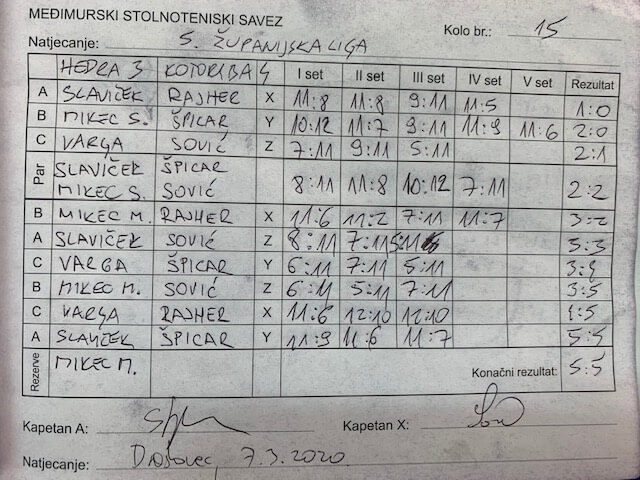 MEĐIMURSKI STOLNOTENISKI SAVEZ
Kolo br.: 15
Natjecanje: 5. ŽUPANIJSKA LIGA
HEDRA 3 KOTORIBA 4 I set II set III set IV set V set Rezultat
A SLAVIČEK RAJHER X 11:8 11:8 9:11 11:5 1:0
B MIKEC S. ŠPICAR Y 10:12 11:7 9:11 11:9 11:6 2:0
C VARGA SOVIĆ Z 7:11 9:11 5:11 2:1
Par SLAVIČEK ŠPICAR
MIKEC S. SOVIĆ 8:11 11:8 10:12 7:11 2:2
B MIKEC M. RAJHER X 11:6 11:2 7:11 11:7 3:2
A SLAVIČEK SOVIĆ Z 8:11 7:11 5:11 3:3
C VARGA ŠPICAR Y 6:11 7:11 5:11 3:4
B MIKEC M. SOVIĆ Z 6:11 5:11 7:11 3:5
C VARGA RAJHER X 11:6 12:10 12:10 4:5
A SLAVIČEK ŠPICAR Y 11:9 11:6 11:7 5:5
Rezerve MIKEC M. Konačni rezultat: 5:5
Kapetan A: Kapetan X:
Natjecanje: 7.3.2020.